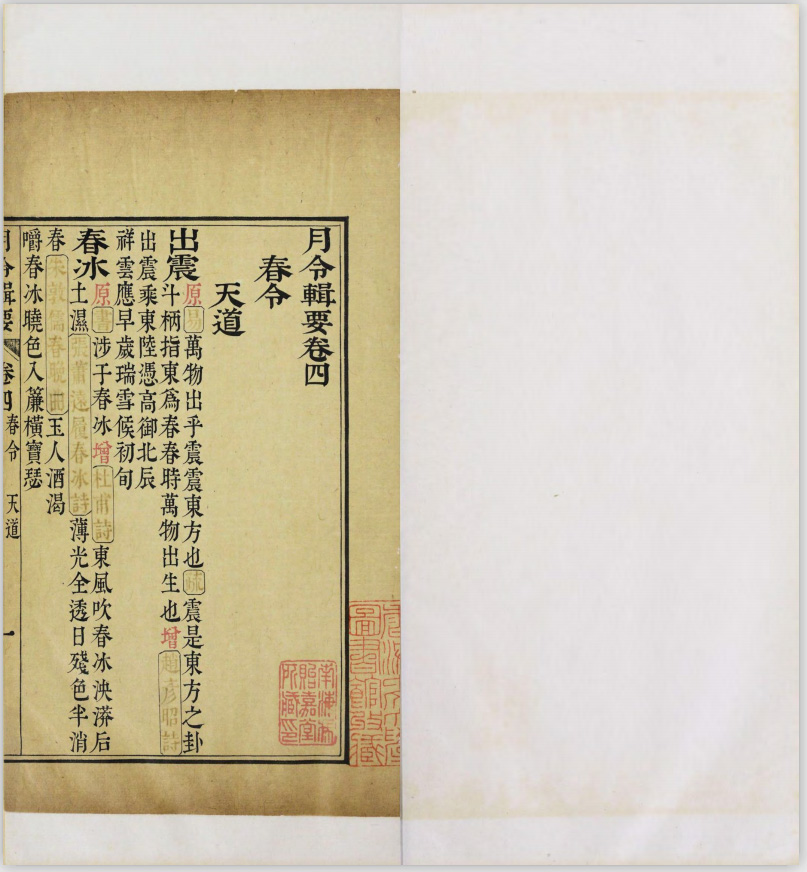 月令輯要卷四
春令
天道
出震原易萬物出乎震震東方也疏震是東方之卦
斗柄指東爲春春時萬物出生也增趙彦昭詩
出震乘東陸憑高御北辰
祥雲應早歲瑞雪候初旬
春冰原書涉于春冰增杜甫詩東風吹春冰泱漭后
土濕張蕭遠履春冰詩薄光全透日殘色半消
春朱敦儒春晚曲玉人酒渴
嚼春冰曉色入簾橫寶瑟
月令輯要 卷四 春令 天道 一
貽嘉堂
所藏印
圖書館收藏